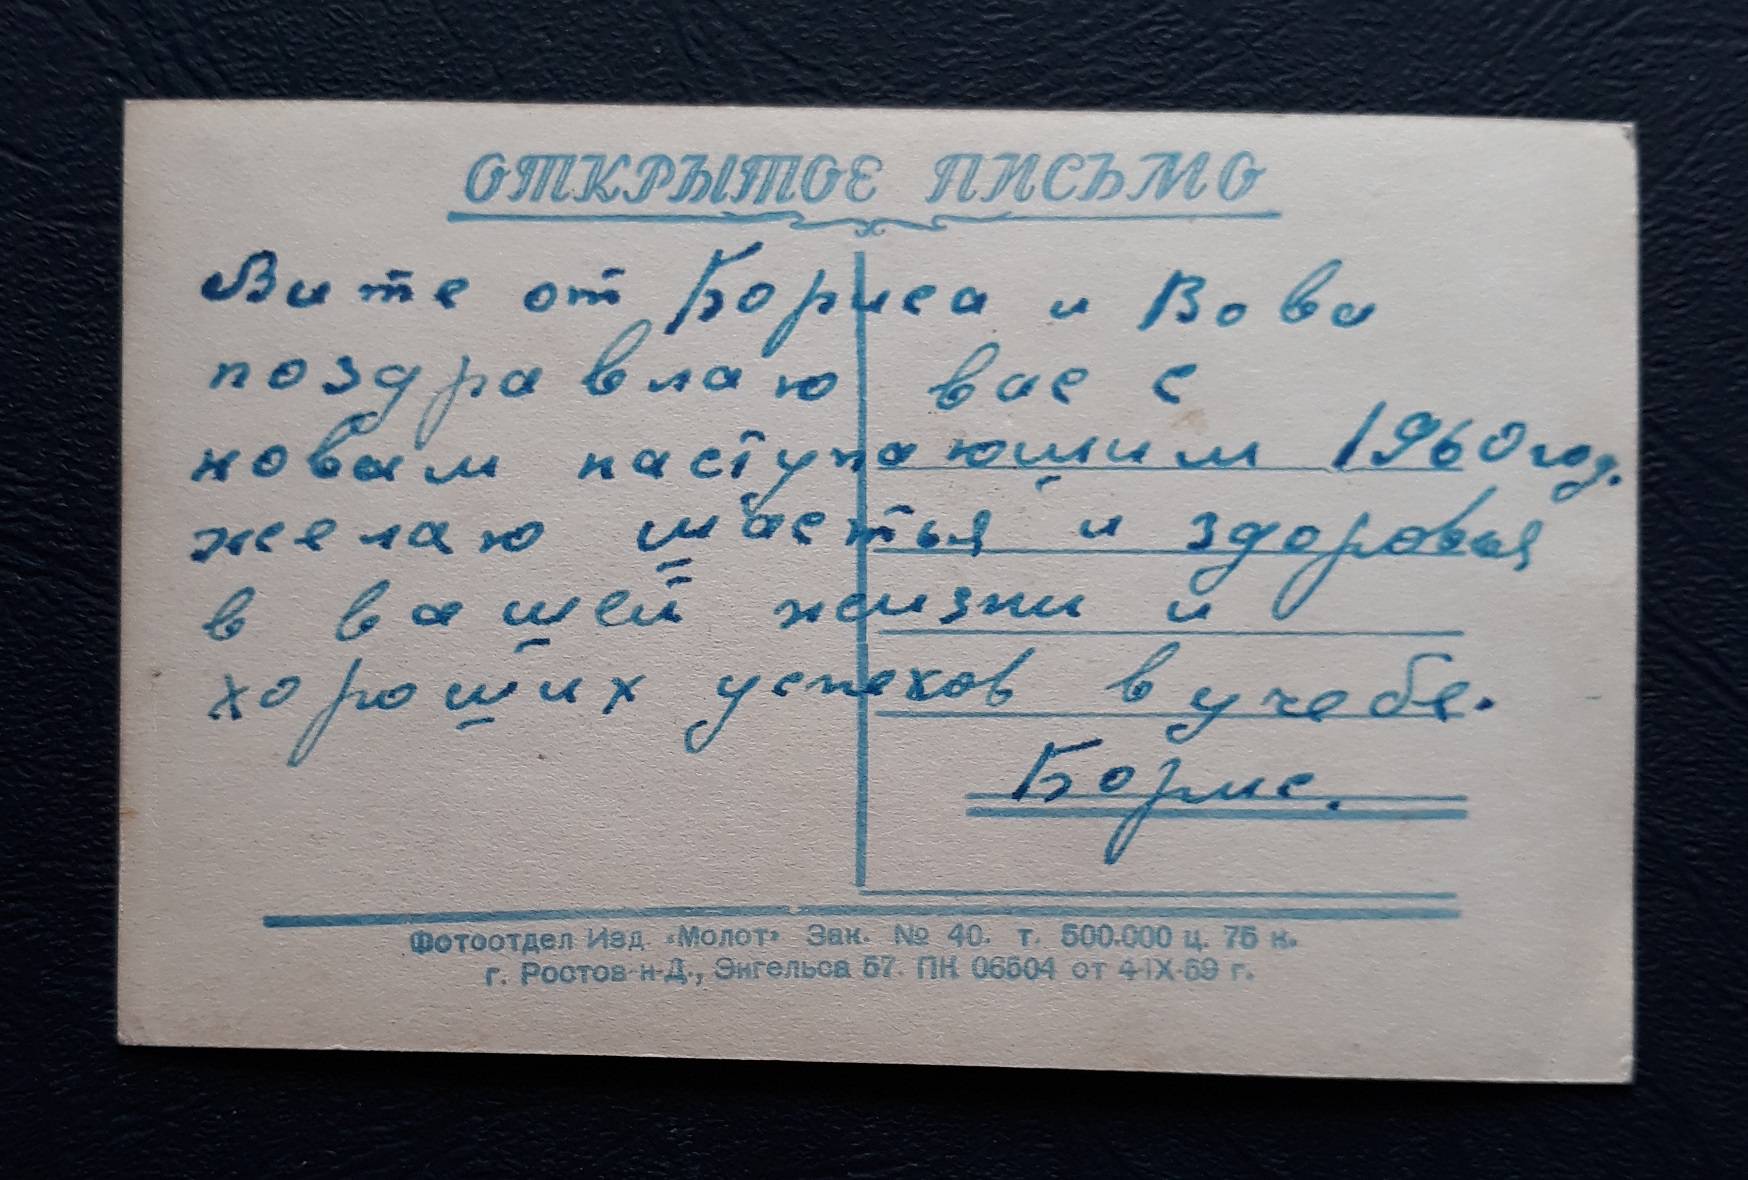 ОТКРЫТОЕ ПИСЬМО
Вите от Бориса и Вовы
поздравлаю вас с
новам наступающим 1960 год.
желаю щастья и здоровья
в вашей жизни и
хороших успехов в учебе.
Борис.
Фотоотдел Изд. «Молот» Зак. № 40. т. 500.000 ц. 75 к.
г. Ростов-н-Д., Энгельса 57. ПК 06504 от 4-IX-59 г.